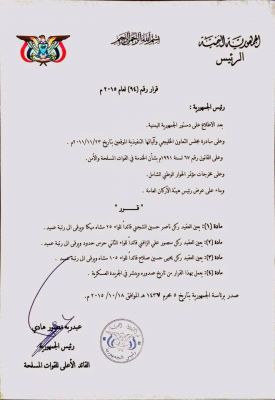 بسم الله الرحمن الرحيم
الجمهورية اليمنية
الرئيس
قرار رقم (٩٤) لعام ٢٠١٥ م
رئيس الجمهورية :
بعد الاطلاع على دستور الجمهورية اليمنية.
وعلى مبادرة مجلس التعاون الخليجي وآلياتها التنفيذية الموقعتين بتاريخ ٢٠١١/١١/٢٣م.
وعلى القانون رقم ٦٧ لسنة ١٩٩١م بشأن الخدمة في القوات المسلحة والأمن.
وعلى مخرجات مؤتمر الحوار الوطني الشامل.
وبناء على عرض رئيس هيئة الأركان العامة.
" قـــرر "
مادة (١): يعين العقيد ركن ناصر حسين الشجني قائداً للواء ٢٥ مشاه ميكا ويرقى الى رتبة عميد .
مادة (٢): يعين العقيد ركن منصور علي الزافني قائداً للواء الثاني حرس حدود ويرقى الى رتبة عميد.
مادة (٣): يعين العقيد ركن يحيى حسين صلاح قائداً للواء ١٠٥ مشاه ويرقى الى رتبة عميد.
مادة (٤): يعمل بهذا القرار من تاريخ صدوره وينشر في الجريدة العسكرية.
صدر برئاسة الجمهورية بتاريخ ٥ محرم ١٤٣٧ هـ الموافق ٢٠١٥/١٠/١٨ م.
عبدربه منصور هادي
رئيس الجمهورية
القائد الأعلى للقوات المسلحة